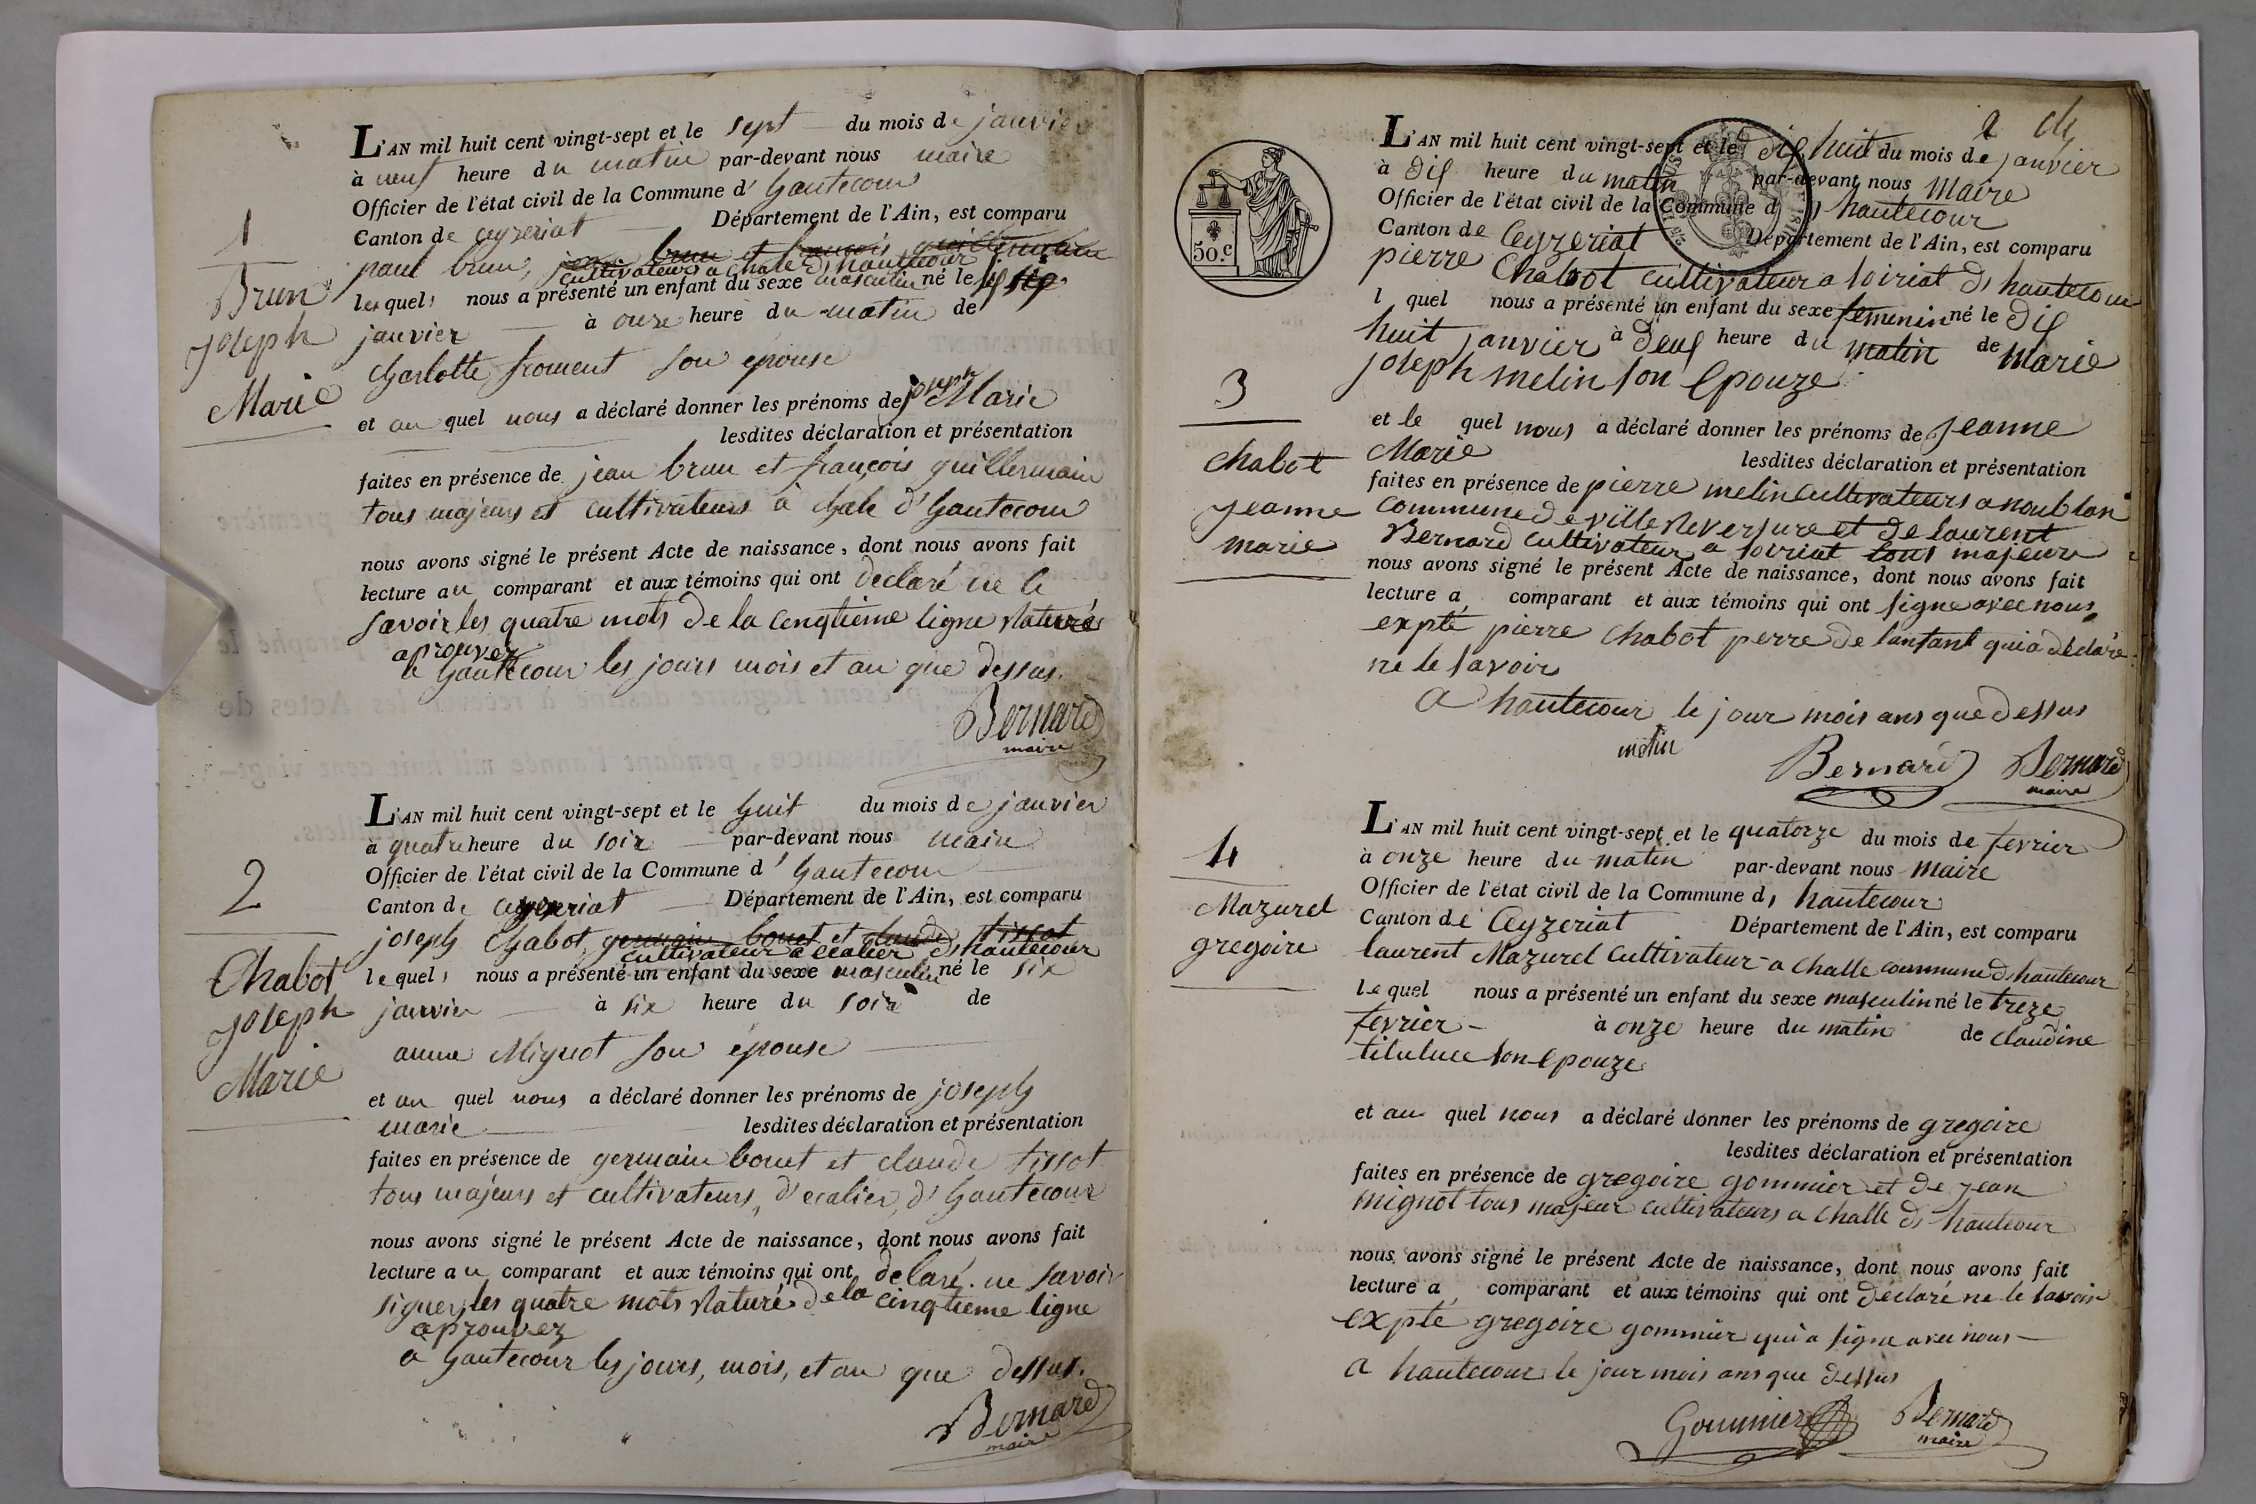 1
Brun
joseph
Marie
L'AN mil huit cent vingt-sept et le sept du mois de janvier
à neuf heure du matin par-devant nous maire
Officier de l'état civil de la Commune d' hautecour
Canton de ceyzeriat Département de l'Ain, est comparu
paul brun, jean brun et françois guillermain
cultivateurs a chale d hautecour
lesquels nous a présenté un enfant du sexe masculin né le
janvier à onze heure du matin de
charlotte froment son épouse
et au quel nous a déclaré donner les prénoms de joseph Marie
lesdites déclaration et présentation
faites en présence de jean brun et françois guillermain
tous majeurs et cultivateurs à chale d'hautecour
nous avons signé le présent Acte de naissance, dont nous avons fait
lecture au comparant et aux témoins qui ont declaré ne le
savoir les quatre mots de la cinqtieme ligne raturés
aprouvez
a hautecour les jours mois et an que dessus.
Bernard
maire
2
Chabot
joseph
Marie
L'AN mil huit cent vingt-sept et le huit du mois de janvier
à quatre heure du soir par-devant nous maire
Officier de l'état civil de la Commune d' hautecour
Canton de ceyzeriat Département de l'Ain, est comparu
joseph chabot, germain bouet et claude tissot
cultivateur a ecalier d hautecour
lequel nous a présenté un enfant du sexe masculin né le six
janvier à six heure du soir de
anne Mignot son épouse
et au quel nous a déclaré donner les prénoms de joseph
marie lesdites déclaration et présentation
faites en présence de germain bouet et claude tissot
tous majeurs et cultivateurs, d'ecalier, d'hautecour
nous avons signé le présent Acte de naissance, dont nous avons fait
lecture au comparant et aux témoins qui ont delaré ne savoir
signer, les quatre mots raturé de la cinqtieme ligne
aprouvez
a hautecour les jours, mois, et an que dessus.
Bernard
maire
2
50.c
3
chabot
jeanne
marie
L'AN mil huit cent vingt-sept et le dix huit du mois de janvier
à dix heure du matin par-devant nous maire
Officier de l'état civil de la Commune d hautecour
Canton de Ceyzeriat Département de l'Ain, est comparu
pierre Chabot cultivateur a soiriat d hautecour
l quel nous a présenté un enfant du sexe femenin né le dix
huit janvier à deux heure du matin de marie
joseph melin son Epouze
et le quel nous a déclaré donner les prénoms de jeanne
Marie lesdites déclaration et présentation
faites en présence de pierre melin cultivateurs a noublan
commune de ville reversure et de laurent
Bernard cultivateur a soiriat tous majeur
nous avons signé le présent Acte de naissance, dont nous avons fait
lecture a comparant et aux témoins qui ont signe avec nous
expté pierre chabot perre de lanfant qui a déclare
ne le savoir
a hautecour le jour mois ans que dessus
melin
Bernard Bernard
maire
4
Mazurel
gregoire
L'AN mil huit cent vingt-sept et le quatorze du mois de fevrier
à onze heure du matin par-devant nous maire
Officier de l'état civil de la Commune d, hautecour
Canton de Ceyzeriat Département de l'Ain, est comparu
laurent Mazurel Cultivateur a challe commune d, hautecour
lequel nous a présenté un enfant du sexe masculin né le treze
fevrier à onze heure du matin de claudine
son Epouze
et au quel nous a déclaré donner les prénoms de gregoire
lesdites déclaration et présentation
faites en présence de gregoire gommier et de jean
mignot tous majeur cultivateurs a challe d, hautecour
nous avons signé le présent Acte de naissance, dont nous avons fait
lecture a comparant et aux témoins qui ont déclaré ne le savoir
expté gregoire gommier qui a signe avec nous
a hautecour le jour mois ans que dessus
Gommier Bernard
maire